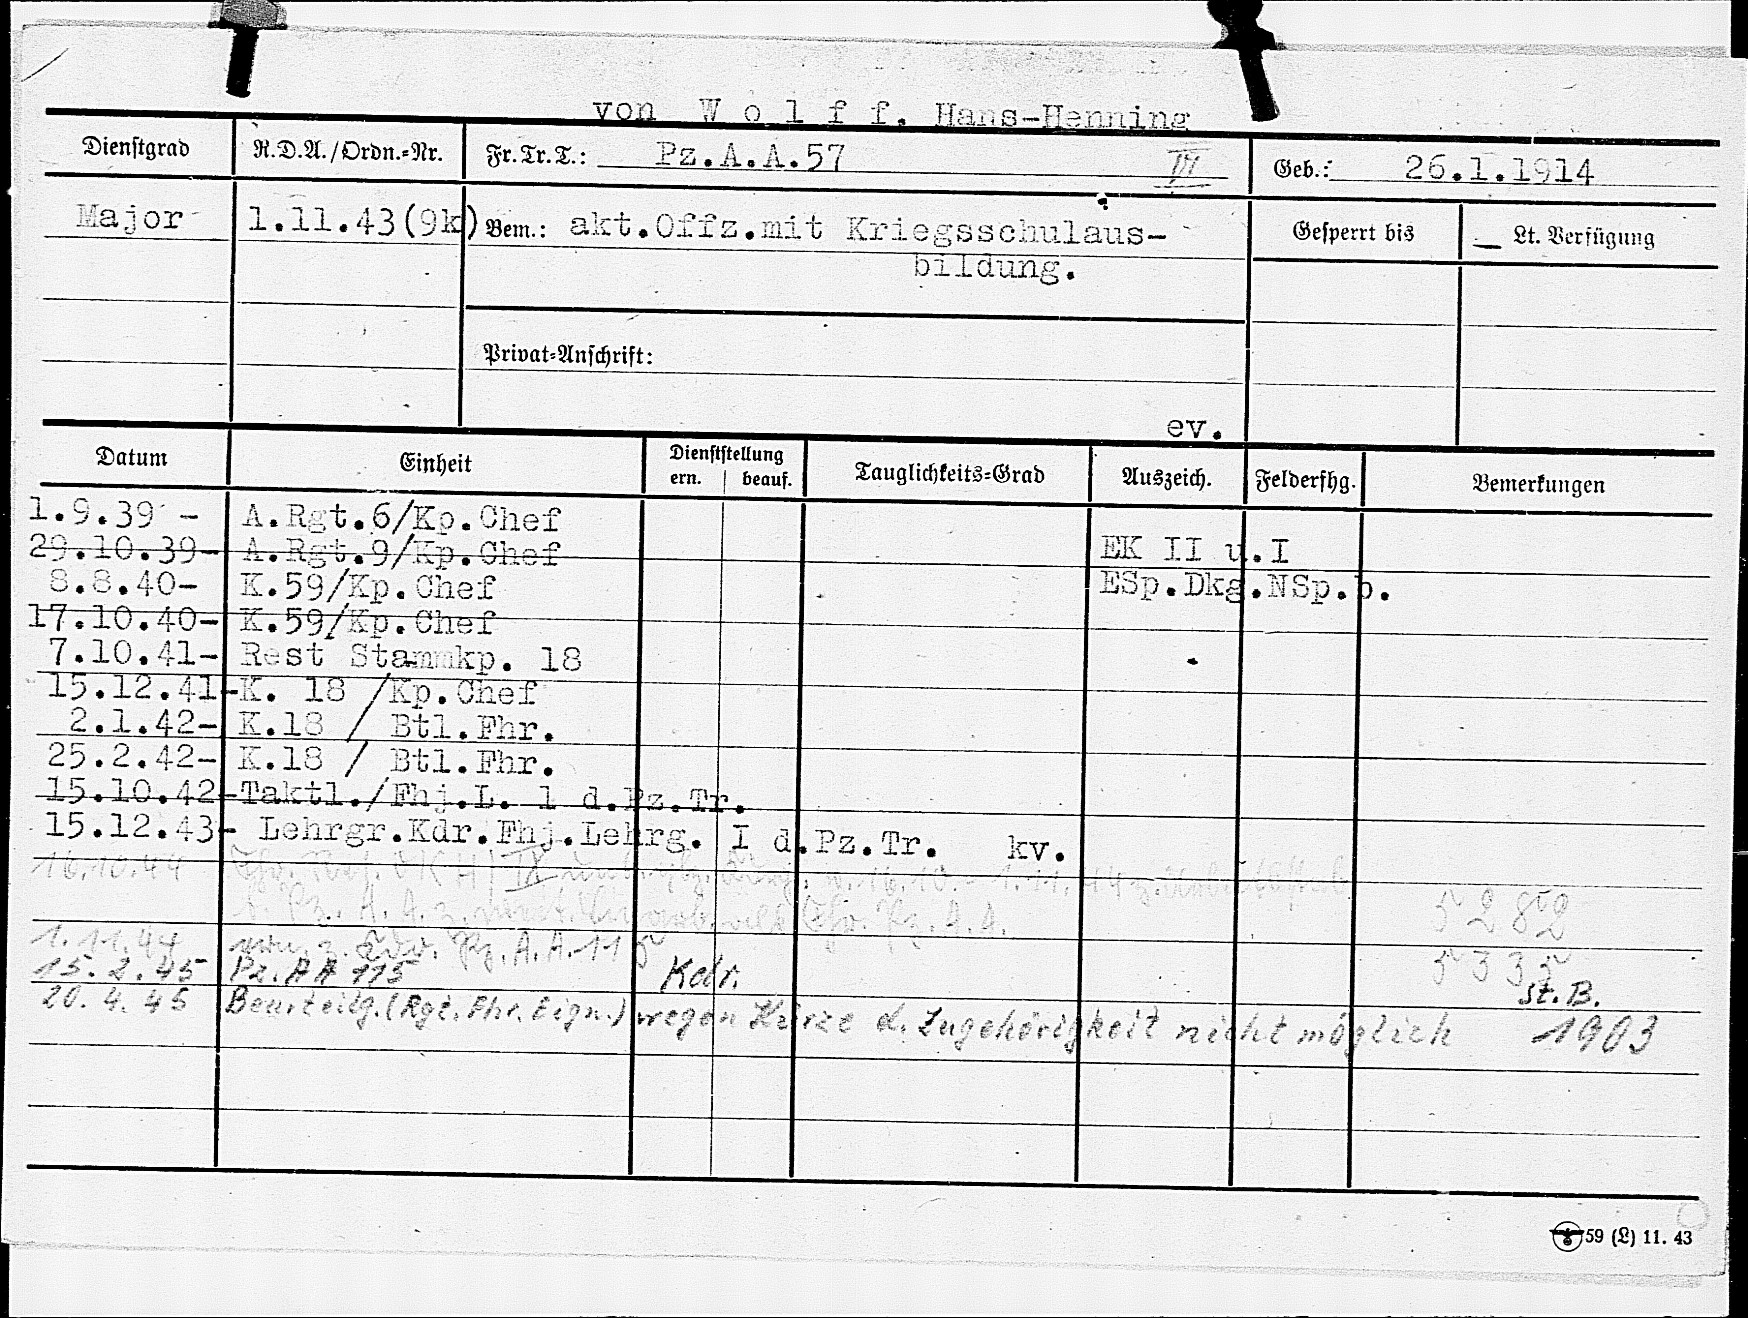 von W o l f f, Hans-Henning
Dienstgrad R.D.A./Ordn.=Nr. Fr.Tr.T.: Pz.A.A.57 VI Geb.: 26.1.1914
Major 1.11.43(9k) Bem.: akt.Offz.mit Kriegsschulaus- Gesperrt bis Lt. Verfügung
bildung.
Privat=Anschrift:
ev.
Datum Einheit Dienststellung ern. beauf. Tauglichkeits=Grad Auszeich. Felderfhg. Bemerkungen
1.9.39 - A.Rgt.6/Kp.Chef
29.10.39- A.Rgt.9/Kp.Chef EK II u.I
8.8.40- K.59/Kp.Chef ESp.Dkg.NSp.b.
17.10.40- K.59/Kp.Chef
7.10.41- Rest Stammkp. 18
15.12.41-K. 18 /Kp.Chef
2.1.42- K.18 / Btl.Fhr.
25.2.42- K.18 / Btl.Fhr.
15.10.42-Taktl./Fhj.L. 1 d.Pz.Tr.
15.12.43- Lehrgr.Kdr.Fhj.Lehrg. I d.Pz.Tr. kv.
16.10.44 OKH 16.10. - 1.11.44
Pz. A. A. Pz. A. A. 5282
1.11.44 Pz. A. A. 115 5335
15.2.45 Pz. AA 115 Kdr. St. B.
20.4.45 Beurteilg. (Rgt. Fhr. Eign.) wegen Kürze d. Zugehörigkeit nicht möglich 1903
59 (L) 11. 43